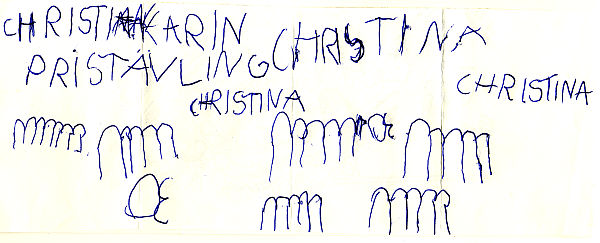 CHRISTI KARIN CHRISTINA
PRISTÁVLING
CHRISTINA CHRISTINA